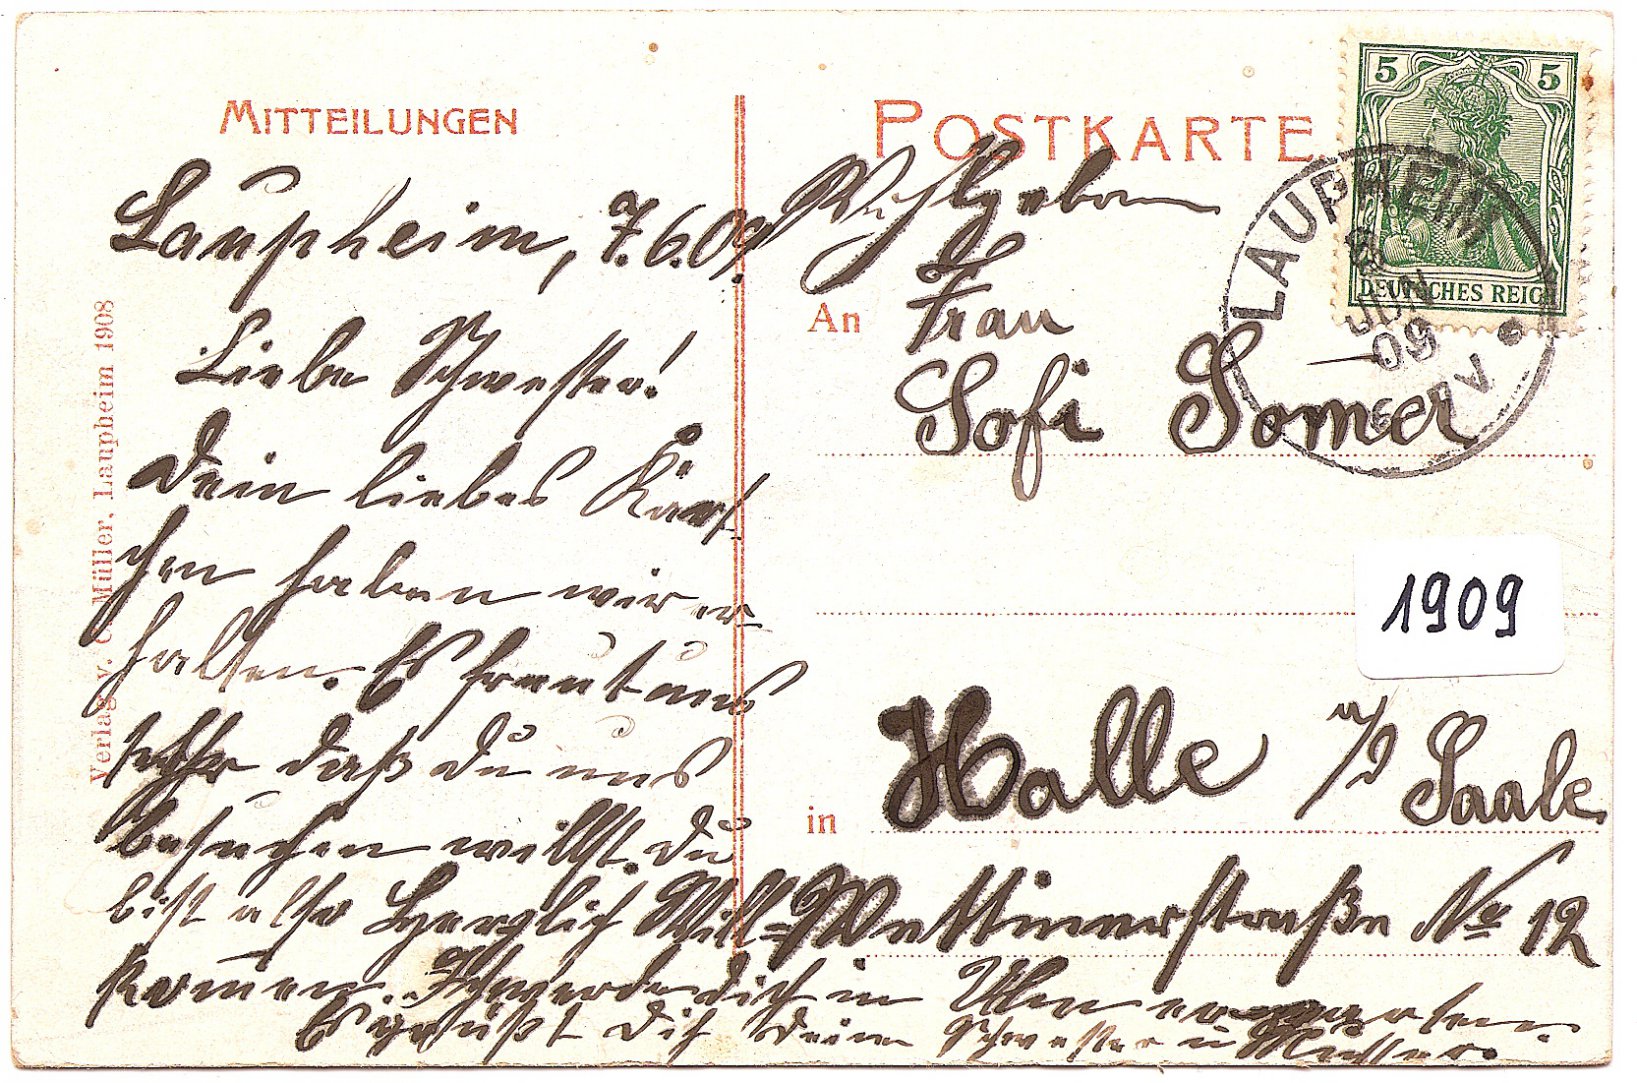 MITTEILUNGEN
Laupheim, 7.6.09.
Liebe Schwester!
Dein liebes Kärt-
chen haben wir er-
halten. Es freut uns
sehr daß du uns
besuchen willst. Du
bist also Herzlich Will=
komen. Ich werde dich in Ulm erwarten.
Es grüßt dich deine Schwester u Mutter.
Verlag v. C. Müller, Laupheim 1908
POSTKARTE
5 5
DEUTSCHES REICH
LAUPHEIM
JUN
09
Wohlgeboren
An Frau
Sofi Somer
1909
in Halle a/d Saale
Wettinerstraße No 12